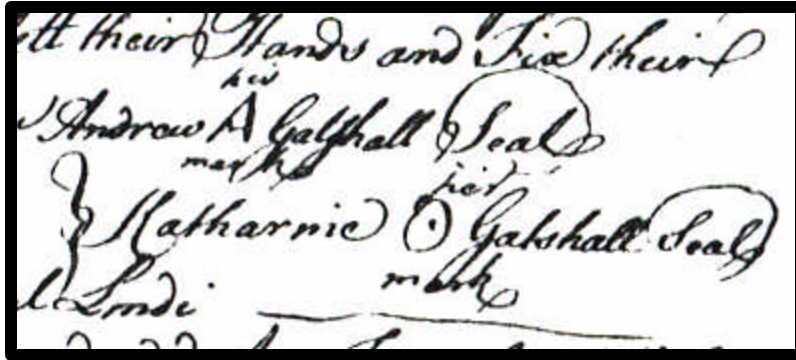 sett their Hands and Fix their
his
Andrew A Galshall Seal
mark
her
Katharnie Galshall Seal
mark
Lmdi